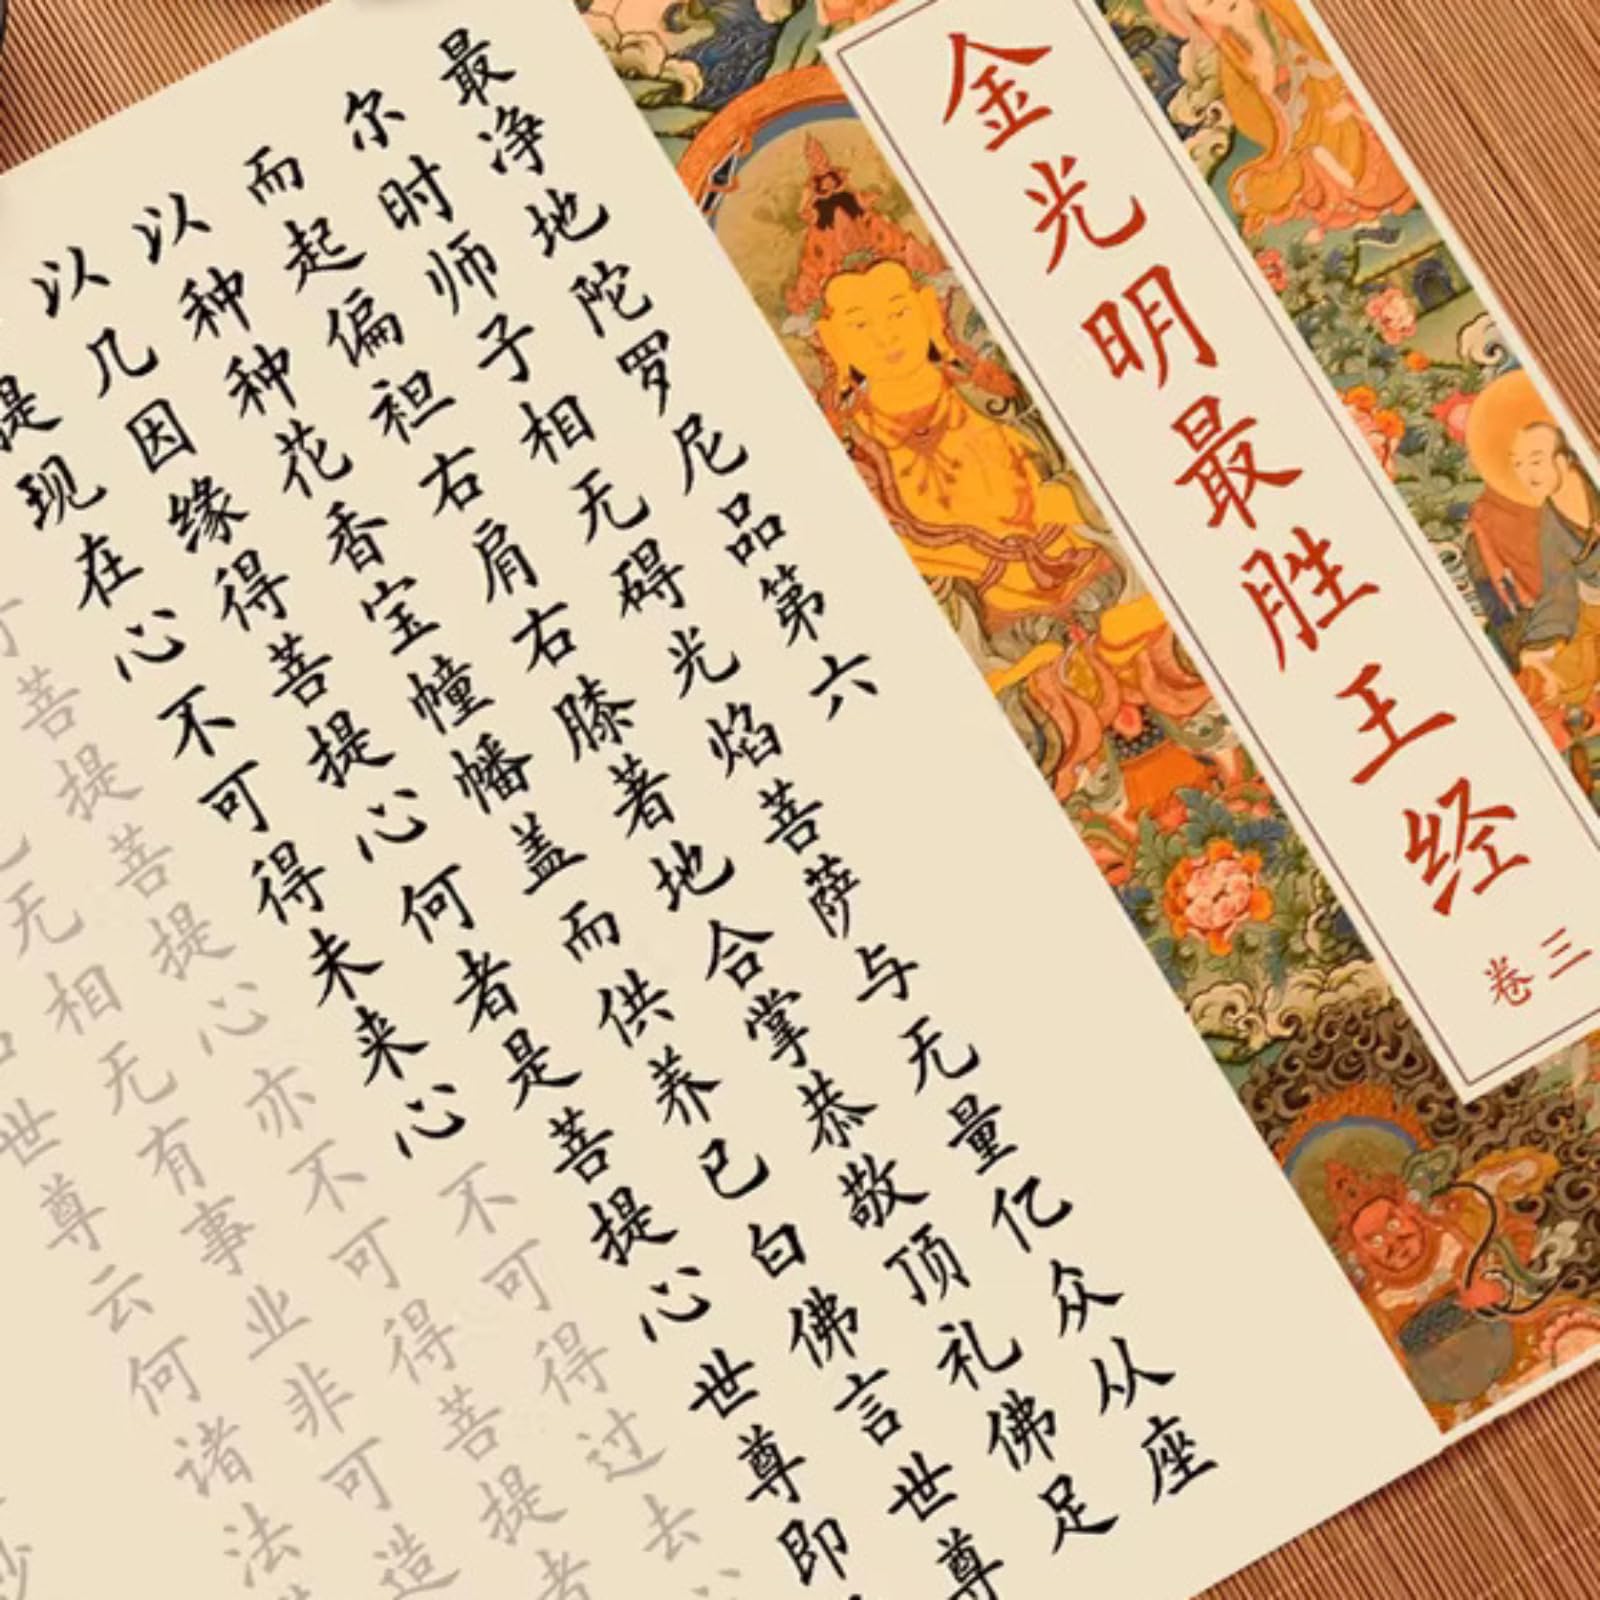 金光明最胜王经
卷三
最净地陀罗尼品第六
尔时师子相无碍光焰菩萨与无量亿众从座
而起偏袒右肩右膝著地合掌恭敬顶礼佛足
以种种花香宝幢幡盖而供养已白佛言世尊
以几因缘得菩提心何者是菩提心世尊即
提现在心不可得未来心不可得过去
菩提菩提心亦不可得菩提者
无相无有事业非可造
世尊云何诸法